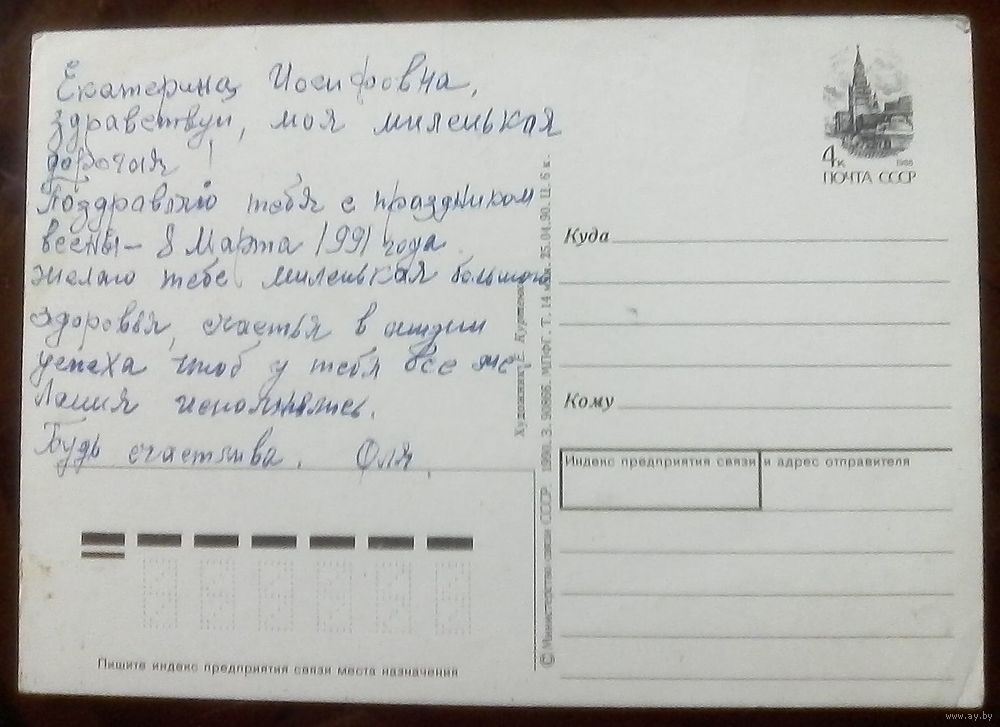 Екатерина Иосифовна,
здравствуй, моя миленькая
дорогая!
Поздравляю тебя с праздником
весны – 8 Марта 1991 года
желаю тебе миленькая большого
здоровья, счастья в жизни
успеха чтоб у тебя все же
лания исполнялись.
Будь счастлива. Оля
4к
1988
ПОЧТА СССР
Куда
Кому
Индекс предприятия связи и адрес отправителя
Пишите индекс предприятия связи места назначения
Художник Е. Куртенко
© Министерство связи СССР. 1990. З. 90866. МПФГ. Т. 14 млн. 25.04.90. Ц. 6 к.
www.ay.by